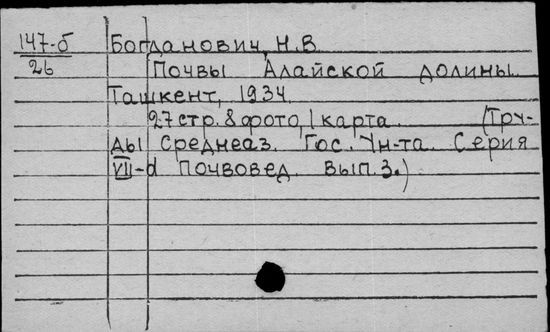 147-б Богданович, Н.В
26 Почвы Алайской долины.
Ташкент, 1934.
27 стр. 8 фото, 1 карта. (Тру-
ды Среднеаз. Гос. Ун-та. Серия
VII-d Почвовед. Вып. 3.)